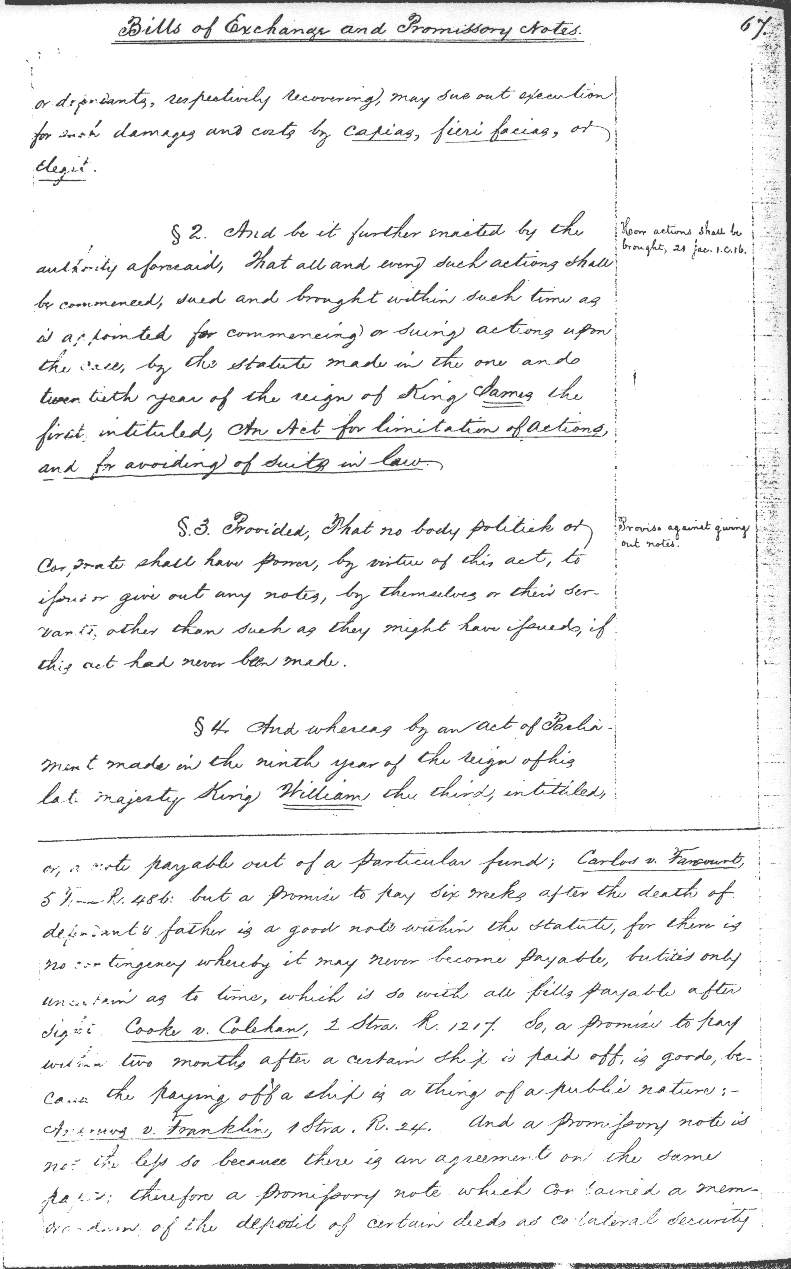 Bills of Exchange and Promissory Notes.
67.
or defendants, respectively recovering, may sue out execution
for such damages and costs by capias, fieri facias, or
elegit.
§ 2. And be it further enacted by the
authority aforesaid, That all and every such actions shall
be commenced, sued and brought within such time as
is appointed for commencing or suing actions upon
the case, by the statute made in the one and
twentieth year of the reign of King James the
first, intituled, An Act for limitation of actions,
and for avoiding of suits in law.
How actions shall be
brought, 21 Jac. 1. c. 16.
§ 3. Provided, That no body politick or
Corporate shall have power, by virtue of this act, to
issue or give out any notes, by themselves or their ser-
vants, other than such as they might have issued, if
this act had never been made.
Proviso against giving
out notes.
§ 4. And whereas by an act of Parlia-
ment made in the ninth year of the reign of his
late majesty King William the third, intituled,
or, a note payable out of a particular fund; Carlos v. Fancourt,
5 Term R. 486: but a promise to pay six weeks after the death of
defendant's father is a good note within the statute, for there is
no contingency whereby it may never become payable, but it is only
uncertain as to time, which is so with all bills payable after
sight. Cooke v. Colehan, 2 Stra. R. 1217. So, a promise to pay
within two months after a certain ship is paid off, is good, be-
cause the paying off a ship is a thing of a public nature:-
Andrews v. Franklin, 1 Stra. R. 24. And a promissory note is
not the less so because there is an agreement on the same
paper; therefore a promissory note which contained a mem-
orandum of the deposit of certain deeds as collateral security